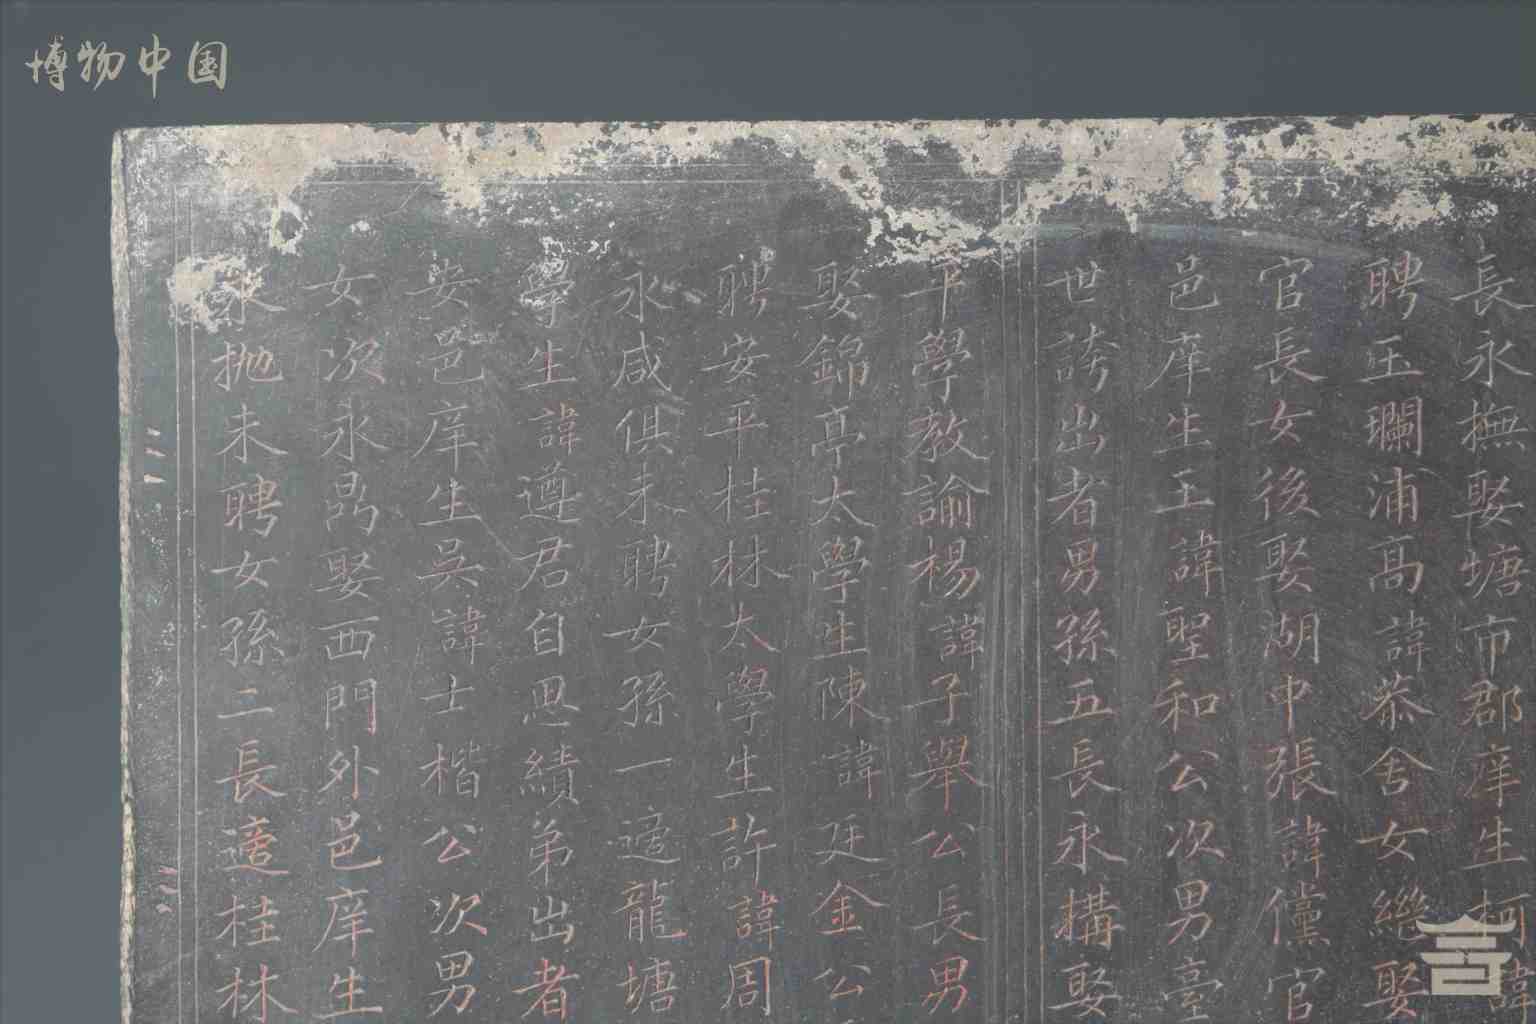 博物中国
長永撫娶塘市郡庠生柯諱
聘玉瓓浦高諱恭舍女繼娶
官長女後娶湖中張諱儻官
邑庠生王諱聖和公次男臺
世誇出者男孫五長永構娶
平學教諭楊諱子舉公長男
娶錦亭太學生陳諱廷金公
聘安平桂林太學生許諱周
永咸俱未聘女孫一適龍塘
學生諱遵君自思績弟出者
安邑庠生吳諱士楷公次男
女次永昂娶西門外邑庠生
永拋未聘女孫二長適桂林